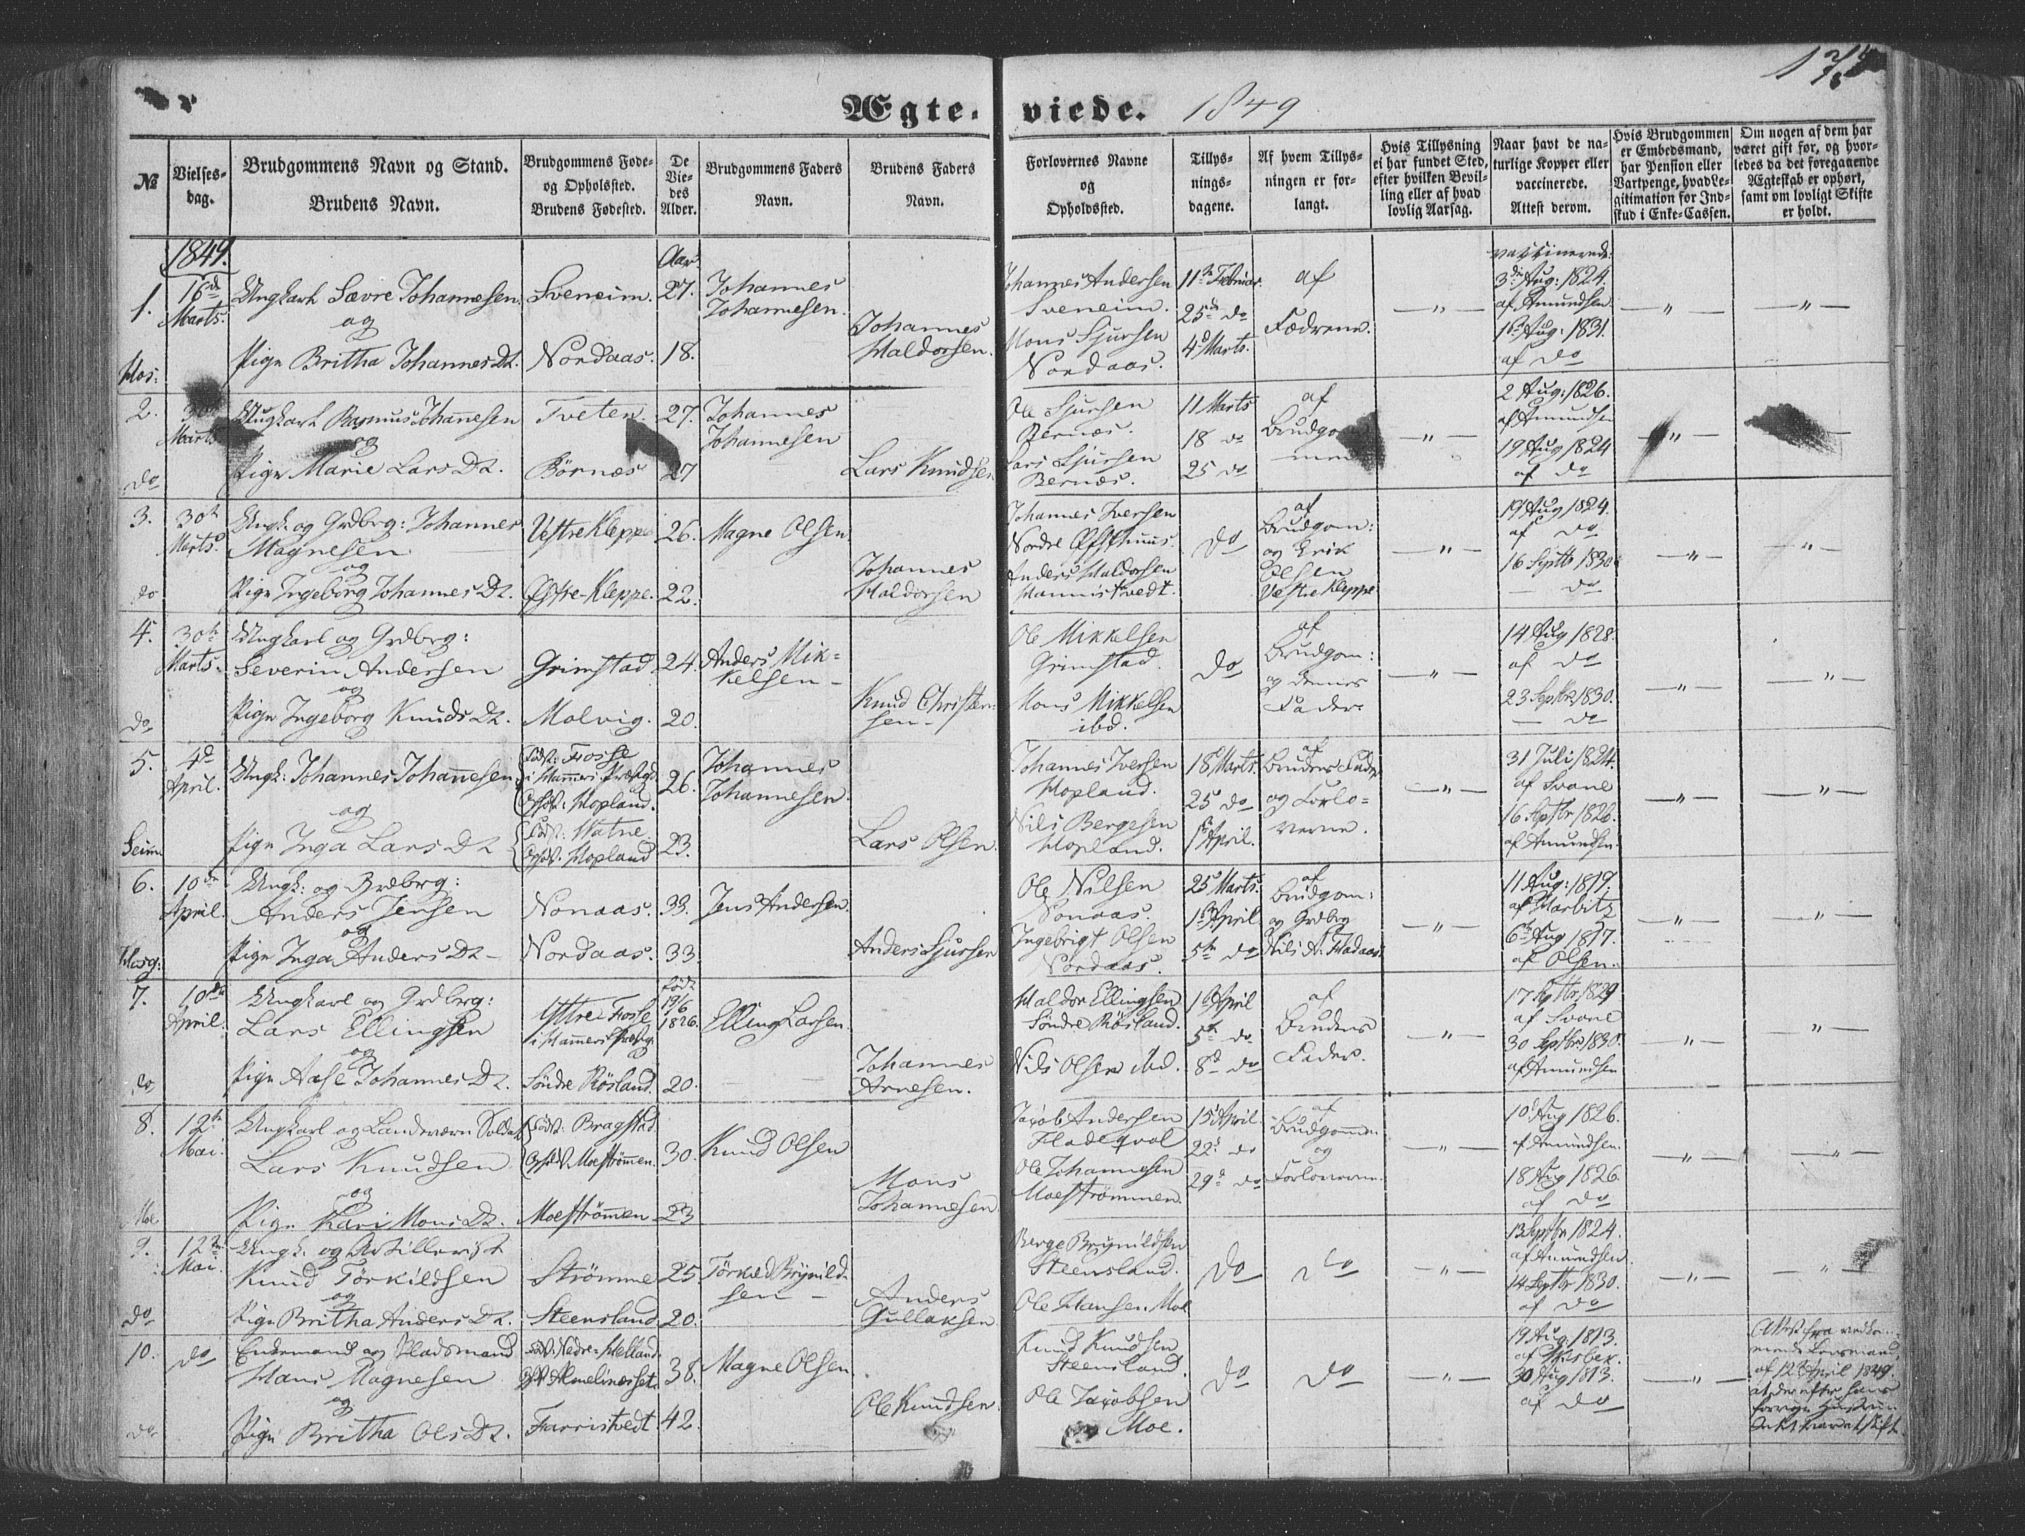 Ægteviede. 1849
No
Vielsesdag.
Brudgommens Navn og Stand.
Brudens Navn.
Brudgommens Føde- og Opholsted.
Brudens Fødested.
De Viedes Alder.
Brudgommens Faders Navn.
Brudens Faders Navn.
Forlovernes Navne og Opholdssted.
Tillysningsdagene.
Af hvem Tillysningen er forlangt.
Hvis Tillysning ei har fundet Sted, efter hvilken Bevilling eller af hvad lovlig Aarsag.
Naar havt de naturlige Kopper eller vaccinerede.
Attest derom.
Hvis Brudgommen er Embedsmand, har Pension eller Vartpenge, hvad Legitimation for Indskud i Enke-Cassen.
Om nogen af dem har været gift før, og hvorledes da det foregaaende Ægteskab er ophørt, samt om lovligt Skifte er holdt.
1849.
Aar
1. 16de Marts. Ungkarl Sævre Johannesen. Sveneim. 27. Johannes Johannesen.
og
Hos: Pige Britha Johannes Dt. Nordaas. 18. Johannes Haldorsen.
Johannes Andersen Sveneim.
Mons Sjursen Nordaas.
11te Februar
25de do
4d Marts.
af Fædrene.
vaccinerede
3die Aug: 1824.
af Amundsen
1ste Aug: 1831.
af do
2. Marts Ungkarl Rasmus Johannesen Tveten. 27. Johannes Johannesen
og
do Pige Marie Lars Dt. Børnæs 27 Lars Knudsen
Ole Sjursen Bernæs.
Lars Sjursen Bernæs.
11 Marts
18 do
25 do
af
2 Aug: 1826.
af Amundsen
19 Aug 1824
af do
3. 30te Marts. Ungk. og Grdbrg: Johannes Magnesen Vestre Kleppe 26. Magne Olsen
og
do Pige Ingeborg Johannes Dt. Østre-Kleppe. 22. Johannes Haldorsen
Johannes Iversen
Nordre
Anders Haldorsen
do
af Brudgom: og Erik Olsen Vestre Kleppe
19 Aug 1824.
af do
16 Septbr 1830
do
4. 30te Marts. Ungkarl og Grdbrg:
Severin Andersen Grimstad 24. Anders Mikkelsen
og
do Pige Ingeborg Knuds Dt. Molvig. 20. Knud Christensen
Ole Mikkelsen Grimstad.
Mons Mikkelsen ibd.
do
af Brudgom: og dennes Fader
14 Aug 1828.
af do
23 Septbr 1830.
do
5. 4de April. Ungk: Johannes Johannesen Født: Fosse i Hammers Præstegd Opholdst: Hopland. 26. Johannes Johannesen.
og
Seim Pige Inga Lars Dt Født: Hatne. Opholdst. Hopland 23. Lars Olsen.
Johannes Iversen Hopland.
Nils Bergesen Hopland.
18 Marts.
25 do
1ste April.
af Brudens Fader og Forloverne.
31 Juli 1824.
af Svane
16 Septbr 1826.
af Amundsen.
6. 10de April. Ungk: og Grdbrg:
Anders Jensen Nonaas. 33. Jens Andersen.
og
Pige Inga Anders Dt Nordaas. 33 Anders Sjursen
Ole Nilsen Nonaas.
Ingebrigt Olsen Nordaas.
25 Marts.
1ste April
5te do
af Brudgom: og Grdbrg Nils
11 Aug: 1819.
af Harbitz
6te Aug 1817.
af Olsen.
7. 10de April. Ungkarl og Grdbrg:
Lars Ellingsen Yttre Fosse i Hammers Præstg. født 19/6 1826. Elling Larsen.
og
do Pige Aase Johannes Dt. Søndre Røsland. 20. Johannes Arnesen.
Haldor Ellingsen Søndre Røsland.
Nils Olsen ibd.
1ste April
5te do
8d do
af Brudens Fader.
17 Septbr 1829
af Svane
30 Septbr 1830.
af Amundsen
8. 12te Mai. Ungkarl og Landværn Soldat
Lars Knudsen Født: Bragstad Opholdst. Moestrømmen. 30. Knud Olsen
og
Moe Pige Kari Mons Dt. Moestrømmen 23 Mons Johannesen.
Jacob Andersen
Ole Johannesen Moestrømmen.
15d April
22d do
29d do
af Brudgommen og Forloverne.
10d Aug 1826.
af Amundsen.
18 Aug 1826.
af do
9. 12te Mai. Ungk. og Artillerist
Knud Törkildsen Strømme 25. Törkild Brynildsen
og
do Pige Britha Anders Dt. Steensland. 20. Anders Gullaksen
Berge Brynildsen Steensland.
Ole Hansen Moe
do
do
13 Septbr 1824.
af Amundsen.
14 Septbr 1830.
af do
10. do Enkemand og Pladsmand
Hans Magnesen født Nedre-Helland. 38. Magne Olsen
og
do Pige Britha Ols Dt. Farristvedt 42. Ole Knudsen
Knud Knudsen Steensland.
Ole Jacobsen Moe.
do
do
19 Aug: 1813.
30 Aug 1813.
af do
Attest fra
af 12 April 1849.
at der efter hans
forrige Hustru